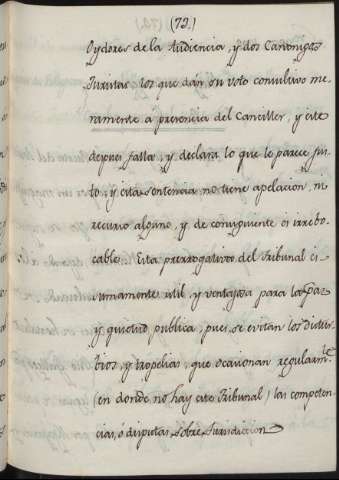 (72.)
Oydores de la Audiencia, y dos Canonigos
Juristas los que dan su voto consultivo me-
ramente a presencia del Canciller, y este
depues falla, y declara lo que le parece jus-
to, y esta sentencia no tiene apelacion, ni
recurso alguno, y de consiguiente es irrebo-
cable. Esta prerrogativa del Tribunal es
sumamente util, y ventajosa para la Paz
y quietud publica, pues se evitan los distur-
bios, y tropelias, que ocasionan regularm.te
(en donde no hay este Tribunal) las competen-
cias, ó disputas sobre Jurisdiccion